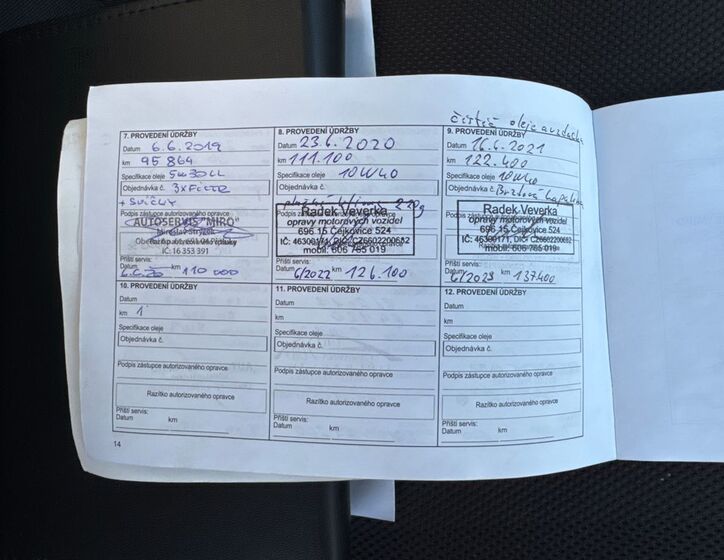 čistič oleje a vzduchu
7. PROVEDENÍ ÚDRŽBY
Datum 6.6.2019
km 95 864
Specifikace oleje 5W30LL
Objednávka č. 3xFILTR
+ SVÍČKY
Podpis zástupce autorizovaného opravce
AUTOSERVIS "MIRO"
Miroslav
IČ: 16 353 391
Příští servis:
Datum 6.6.20 km 110 000
8. PROVEDENÍ ÚDRŽBY
Datum 23.6.2020
km 111.100
Specifikace oleje 10W40
Objednávka č.
220g
Radek Veverka
opravy motorových vozidel
696 15 Čejkovice 524
IČ: 46300171, DIČ: CZ6602200652
mobil: 606 765 019
Příští servis:
Datum 6/2022 km 126.100
9. PROVEDENÍ ÚDRŽBY
Datum 16.6.2021
km 122.400
Specifikace oleje 10W40
Objednávka č. Brzdová kapalina
Radek Veverka
opravy motorových vozidel
696 15 Čejkovice 524
IČ: 46300171, DIČ: CZ6602200652
mobil: 606 765 019
Příští servis:
Datum 6/2023 km 137400
10. PROVEDENÍ ÚDRŽBY
Datum
km 1
Specifikace oleje
Objednávka č.
Podpis zástupce autorizovaného opravce
Razítko autorizovaného opravce
Příští servis:
Datum km
11. PROVEDENÍ ÚDRŽBY
Datum
km
Specifikace oleje
Objednávka č.
Podpis zástupce autorizovaného opravce
Razítko autorizovaného opravce
Příští servis:
Datum km
12. PROVEDENÍ ÚDRŽBY
Datum
km
Specifikace oleje
Objednávka č.
Podpis zástupce autorizovaného opravce
Razítko autorizovaného opravce
Příští servis:
Datum km
14